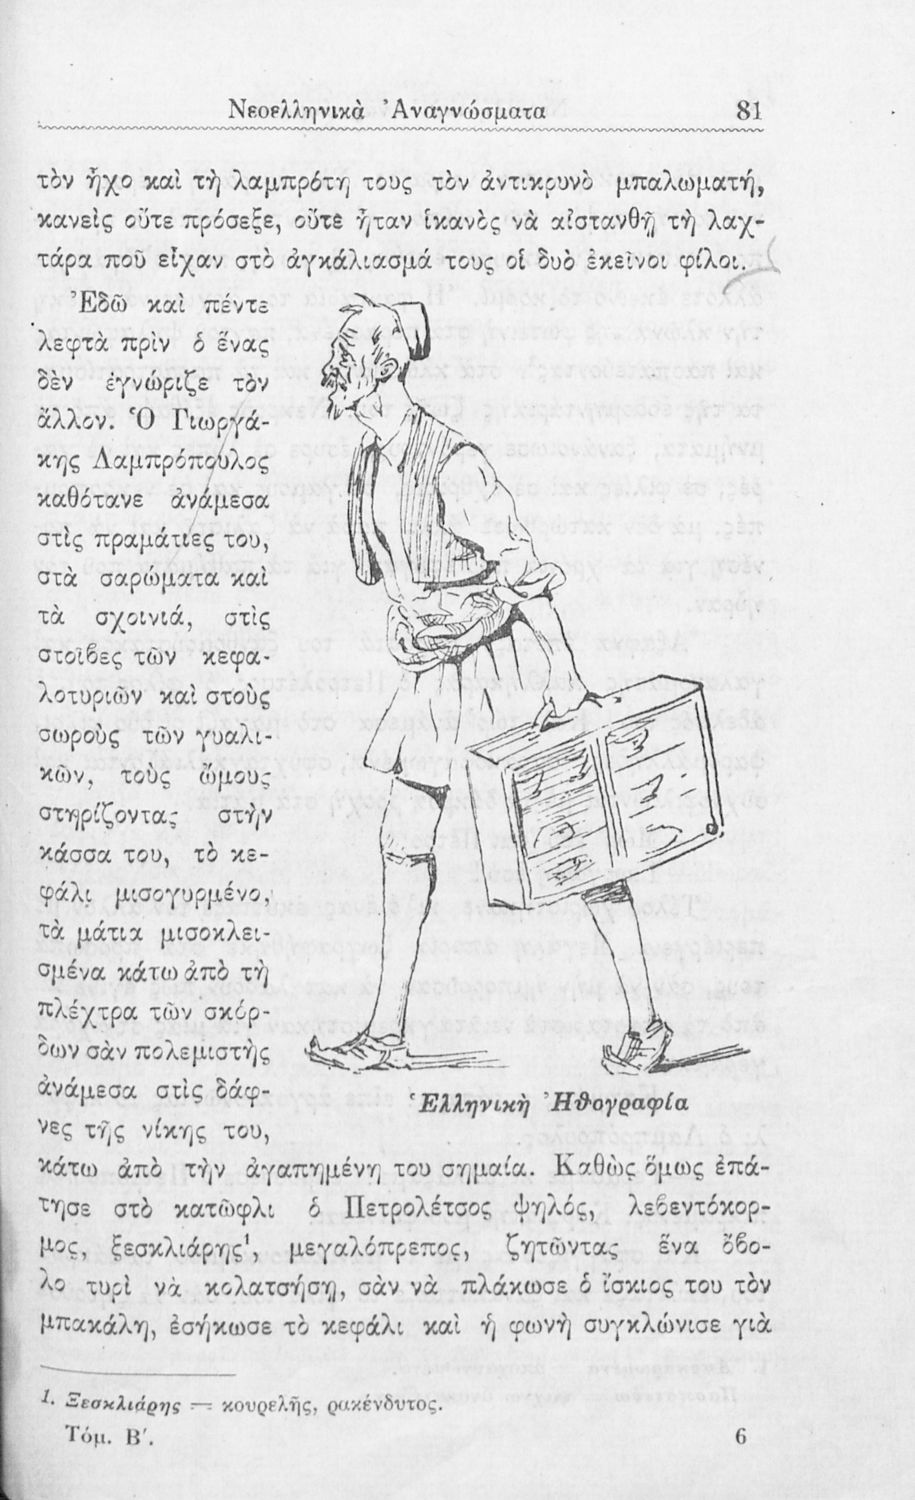 Νεοελληνικὰ Ἀναγνώσματα 81
τὸν ἦχο καὶ τὴ λαμπρότη τους τὸν ἀντικρυνὸ μπαλωματή,
κανεὶς οὔτε πρόσεξε, οὔτε ἦταν ἱκανὸς νὰ αἰστανθῇ τὴ λαχ-
τάρα ποῦ εἶχαν στὸ ἀγκάλιασμά τους οἱ δυὸ ἐκεῖνοι φίλοι.
Ἐδῶ καὶ πέντε
λεφτὰ πρὶν ὁ ἕνας
δὲν ἐγνώριζε τὸν
ἄλλον. Ὁ Γιωργά-
κης Λαμπρόπουλος
καθότανε ἀνάμεσα
στὶς πραμάτιες του,
στὰ σαρώματα καὶ
τὰ σχοινιά, στὶς
στοῖβες τῶν κεφα-
λοτυριῶν καὶ στοὺς
σωροὺς τῶν γυαλι-
κῶν, τοὺς ὤμους
στηρίζοντας στὴν
κάσσα του, τὸ κε-
φάλι μισογυρμένο,
τὰ μάτια μισοκλει-
σμένα κάτω ἀπὸ τὴ
πλέχτρα τῶν σκόρ-
δων σὰν πολεμιστὴς
ἀνάμεσα στὶς δάφ-
νες τῆς νίκης του,
κάτω ἀπὸ τὴν ἀγαπημένη του σημαία. Καθὼς ὅμως ἐπά-
τησε στὸ κατῶφλι ὁ Πετρολέτσος ψηλός, λεβεντόκορ-
μος, ξεσκλιάρης¹, μεγαλόπρεπος, ζητῶντας ἕνα ὀβο-
λο τυρὶ νὰ κολατσήσῃ, σὰν νὰ πλάκωσε ὁ ἴσκιος του τὸν
μπακάλη, ἐσήκωσε τὸ κεφάλι καὶ ἡ φωνὴ συγκλώνισε γιὰ
Ἑλληνικὴ Ἠθογραφία
1. Ξεσκλιάρης = κουρελῆς, ρακένδυτος.
Τόμ. Β΄. 6